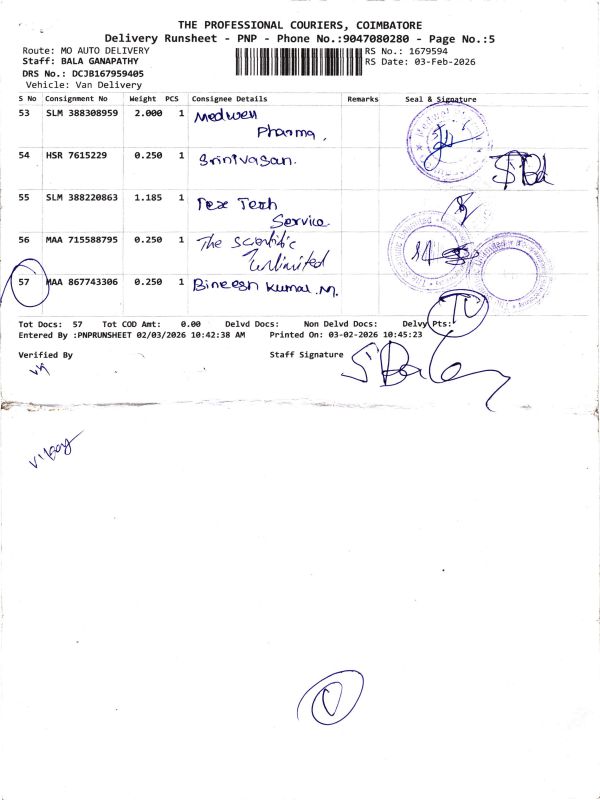 THE PROFESSIONAL COURIERS, COIMBATORE
Delivery Runsheet - PNP - Phone No.:9047080280 - Page No.:5
Route: MO AUTO DELIVERY RS No.: 1679594
Staff: BALA GANAPATHY RS Date: 03-Feb-2026
DRS No.: DCJB167959405
Vehicle: Van Delivery
S No Consignment No Weight PCS Consignee Details Remarks Seal & Signature
53 SLM 388308959 2.000 1 Medwell
Pharma,
54 HSR 7615229 0.250 1 Srinivasan.
55 SLM 388220863 1.185 1 Tex Tech
Service
56 MAA 715588795 0.250 1 The Scientific
Unlimited
57 MAA 867743306 0.250 1 Bineesh Kumar.M.
Tot Docs: 57 Tot COD Amt: 0.00 Delvd Docs: Non Delvd Docs: Delvy Pts:
Entered By :PNPRUNSHEET 02/03/2026 10:42:38 AM Printed On: 03-02-2026 10:45:23
Verified By Staff Signature
S Bala